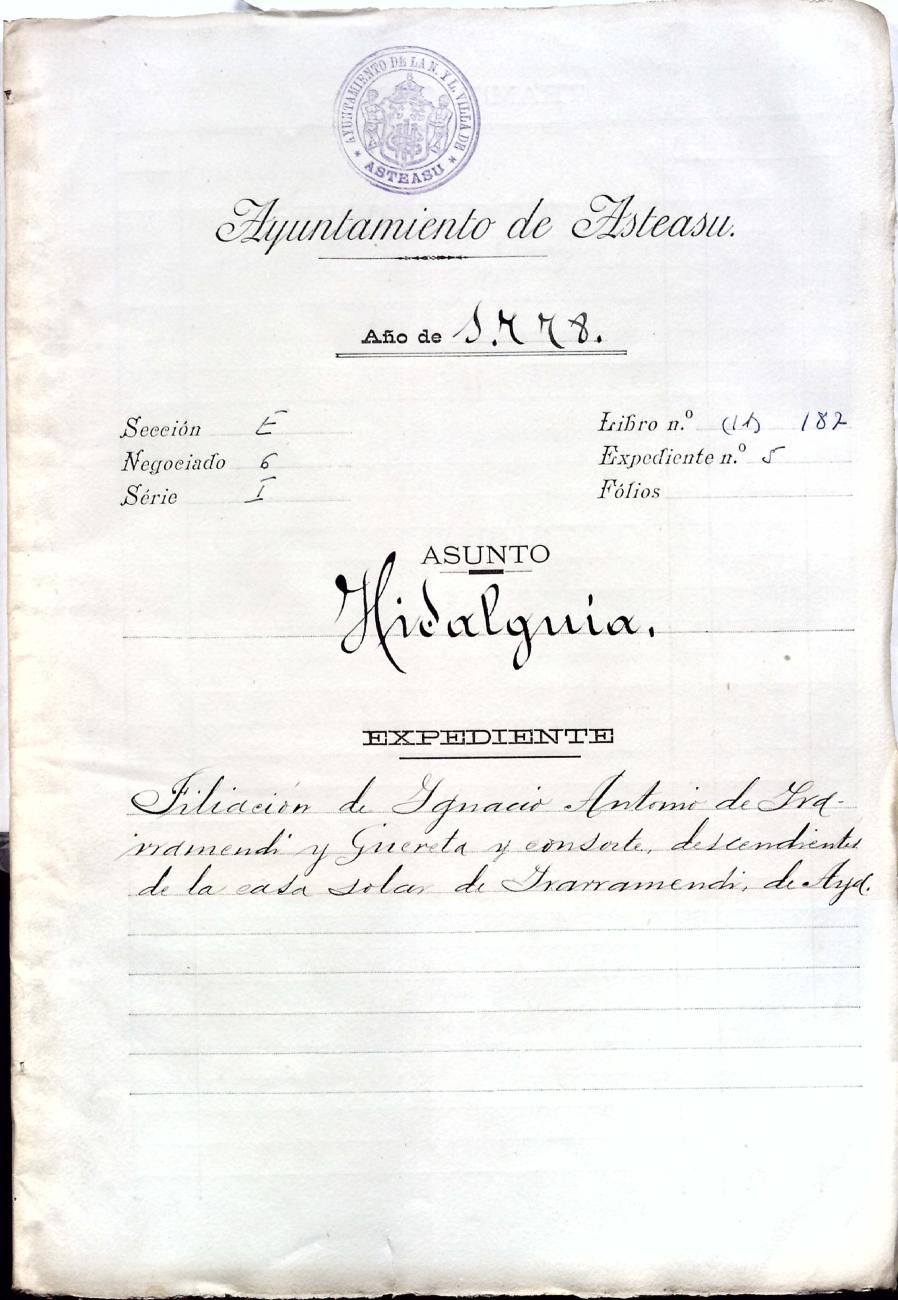 AYUNTAMIENTO DE LA N. Y L. VILLA DE
* ASTEASU *
Ayuntamiento de Asteasu.
Año de 1.778.
Sección E
Negociado 6
Série I
Libro n.º (11) 182
Expediente n.º 5
Fólios
ASUNTO
Hidalguía.
EXPEDIENTE
Filiación de Ygnacio Antonio de Yra-
rramendi y Guereta y consorte, descendientes
de la casa solar de Yrarramendi, de Aya.